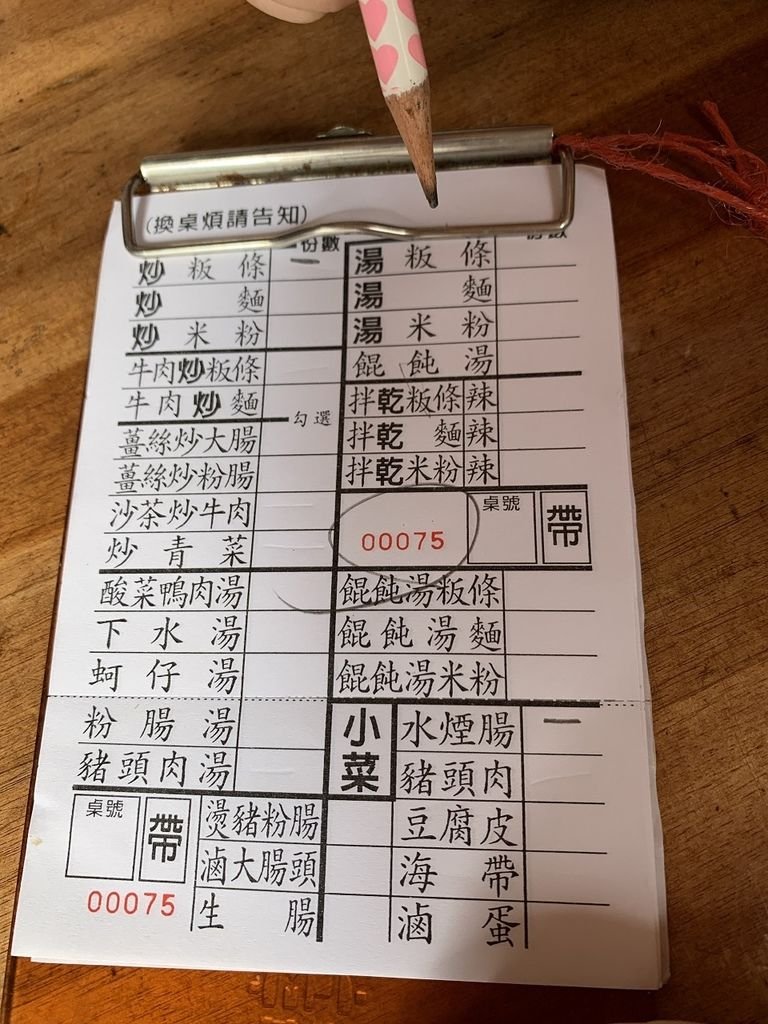 (換桌煩請告知)
份數
炒粄條 一
炒麵
炒米粉
牛肉炒粄條
牛肉炒麵
勾選
薑絲炒大腸
薑絲炒粉腸
沙茶炒牛肉
炒青菜
酸菜鴨肉湯
下水湯
蚵仔湯
粉腸湯
豬頭肉湯
桌號
帶
00075
燙豬粉腸
滷大腸頭
生腸
份數
湯粄條
湯麵
湯米粉
餛飩湯
拌乾粄條 辣
拌乾麵 辣
拌乾米粉 辣
00075
桌號
帶
餛飩湯粄條
餛飩湯麵
餛飩湯米粉
小菜
水煙腸 一
豬頭肉
豆腐皮
海帶
滷蛋